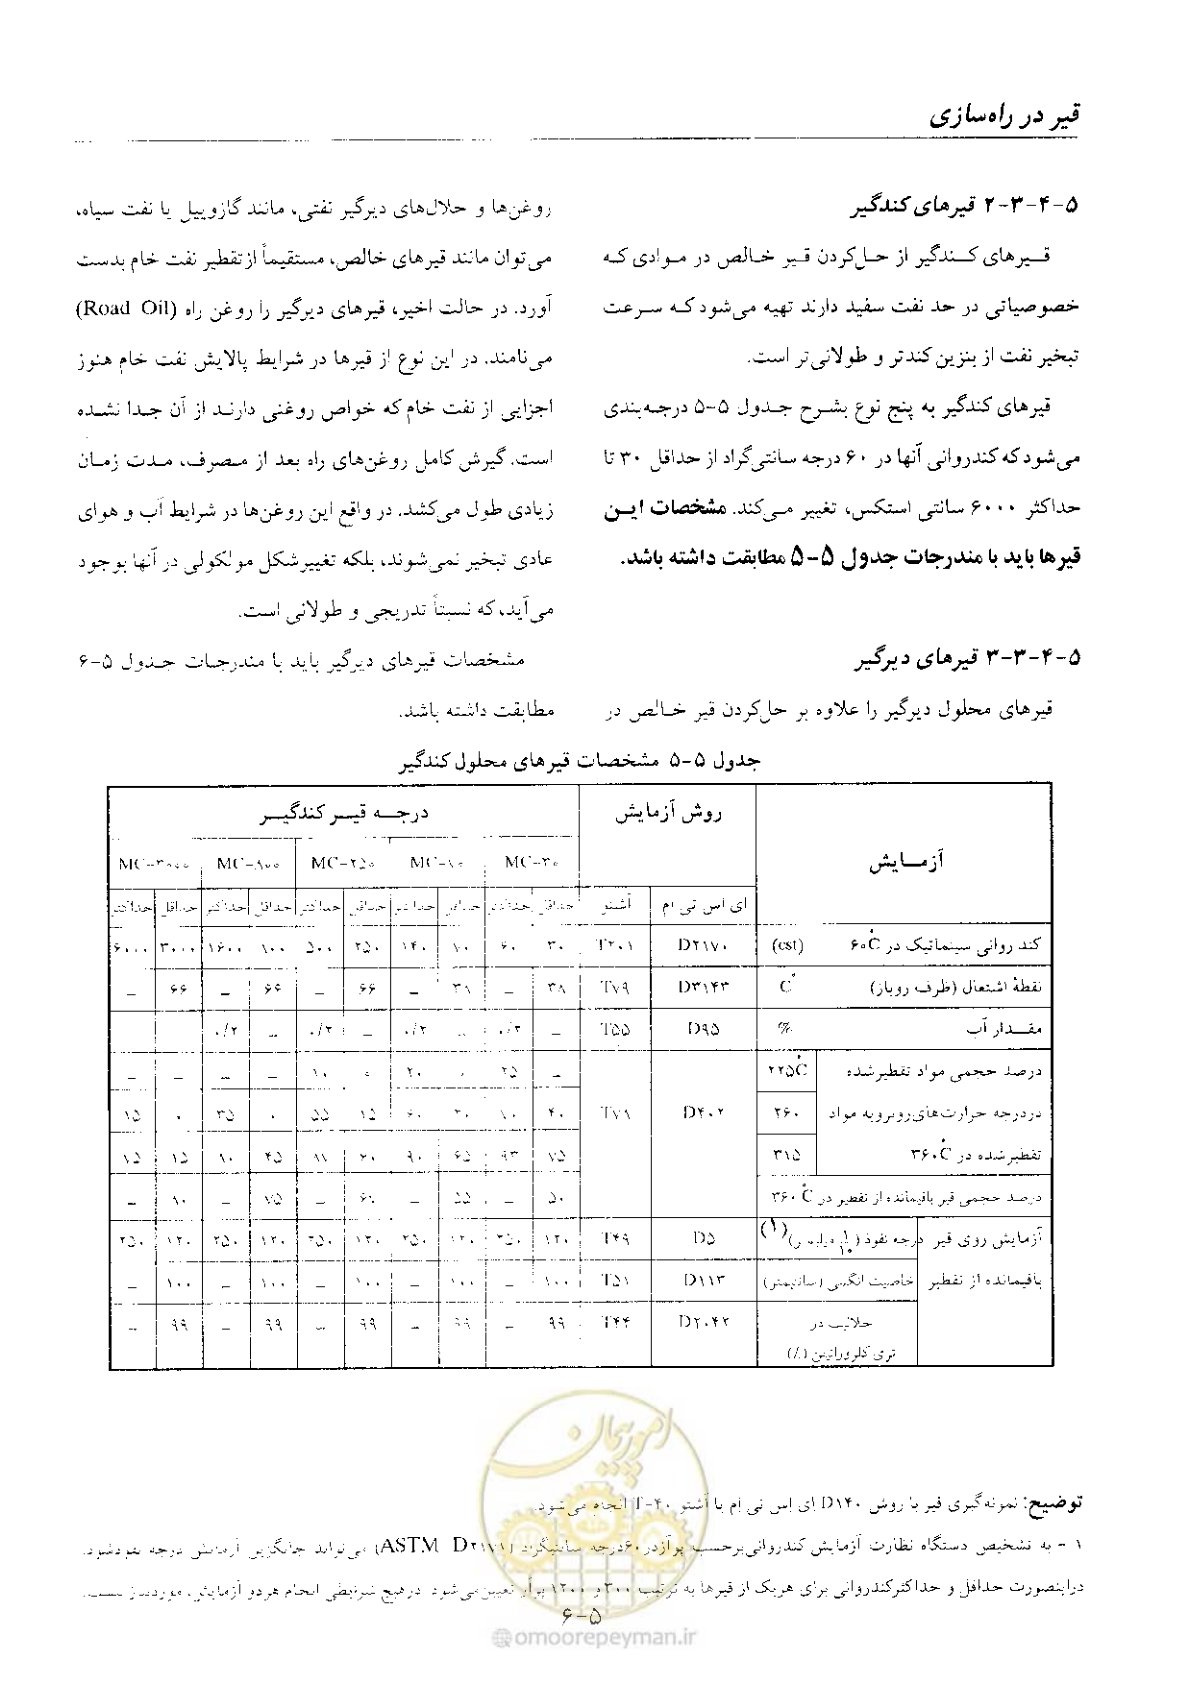 قیر در راه‌سازی
۵-۴-۳-۲ قیرهای کندگیر
قیرهای کندگیر از حل‌کردن قیر خالص در موادی که
خصوصیاتی در حد نفت سفید دارند تهیه می‌شود که سرعت
تبخیر نفت از بنزین کندتر و طولانی‌تر است.
قیرهای کندگیر به پنج نوع بشرح جدول ۵-۵ درجه‌بندی
می‌شود که کندروانی آنها در ۶۰ درجه سانتی‌گراد از حداقل ۳۰ تا
حداکثر ۶۰۰۰ سانتی استکس، تغییر می‌کند. مشخصات این
قیرها باید با مندرجات جدول ۵-۵ مطابقت داشته باشد.
۵-۴-۳-۳ قیرهای دیرگیر
قیرهای محلول دیرگیر را علاوه بر حل‌کردن قیر خالص در
روغن‌ها و حلال‌های دیرگیر نفتی، مانند گازوییل یا نفت سیاه،
می‌توان مانند قیرهای خالص، مستقیماً از تقطیر نفت خام بدست
آورد. در حالت اخیر، قیرهای دیرگیر را روغن راه (Road Oil)
می‌نامند. در این نوع از قیرها در شرایط پالایش نفت خام هنوز
اجزایی از نفت خام که خواص روغنی دارند از آن جدا نشده
است. گیرش کامل روغن‌های راه بعد از مصرف، مدت زمان
زیادی طول می‌کشد. در واقع این روغن‌ها در شرایط آب و هوای
عادی تبخیر نمی‌شوند، بلکه تغییر شکل مولکولی در آنها بوجود
می‌آید، که نسبتاً تدریجی و طولانی است.
مشخصات قیرهای دیرگیر باید با مندرجات جدول ۵-۶
مطابقت داشته باشد.
جدول ۵-۵ مشخصات قیرهای محلول کندگیر
آزمــایش روش آزمایش درجــه قیــر کندگیــر
MC-۳۰ MC-۷۰ MC-۲۵۰ MC-۸۰۰ MC-۳۰۰۰
ای اس تی ام آشتو حداقل حداکثر حداقل حداکثر حداقل حداکثر حداقل حداکثر حداقل حداکثر
کند روانی سینماتیک در ۶۰°C (cst) D۲۱۷۰ T۲۰۱ ۳۰ ۶۰ ۷۰ ۱۴۰ ۲۵۰ ۵۰۰ ۱۶۰۰ ۳۰۰۰ ۶۰۰۰
نقطهٔ اشتعال (ظرف روباز) C° D۳۱۴۳ T۷۹ ۳۸ – ۳۸ – ۶۶ – ۶۶ – ۶۶ –
مقــدار آب % D۹۵ T۵۵ – ۰/۲ – ۰/۲ – ۰/۲ – ۰/۲
درصد حجمی مواد تقطیرشده ۲۲۵°C – ۲۵ ۰ ۲۰ ۰ ۱۰ – – – –
در درجه حرارت‌های روبرو به مواد ۲۶۰ D۴۰۲ ۴۰ ۷۰ ۲۰ ۶۰ ۱۵ ۵۵ ۰ ۳۵ ۰ ۱۵
تقطیر شده در ۳۶۰°C ۳۱۵ ۷۵ ۹۳ ۶۵ ۹۰ ۶۰ ۴۵ ۱۵
درصد حجمی قیر باقیمانده از تقطیر در ۳۶۰°C ۵۰ – ۵۵ – – ۷۵ – –
آزمایش روی قیر درجه نفوذ (۱) D۵ T۴۹ ۱۲۰ ۲۵۰ ۱۲۰ ۲۵۰ ۱۲۰ ۲۵۰ ۱۲۰ ۲۵۰ ۱۲۰ ۲۵۰
باقیمانده از تقطیر خاصیت انگمی (سانتیمتر) D۱۱۳ T۵۱ ۱۰۰ – ۱۰۰ – ۱۰۰ – ۱۰۰ – ۱۰۰ –
حلالیت در D۲۰۴۲ T۴۴ ۹۹ – ۹۹ – ۹۹ – ۹۹ – ۹۹ –
تری کلرواتیلن (٪)
امور پیمان
توضیح: نمونه‌گیری قیر با روش D۱۴۰ ای اس تی ام یا آشتو T-۴۰ انجام می‌شود.
۱ - به تشخیص دستگاه نظارت آزمایش کندروانی برحسب پوآز در ۶۰ درجه سانتیگراد (ASTM D۲۱۷۱) می‌تواند جایگزین آزمایش درجه نفوذ شود.
در اینصورت حداقل و حداکثر کندروانی برای هریک از قیرها به ترتیب ۳۰۰ و ۱۲۰۰ پوآز تعیین می‌شود. در هیچ شرایطی انجام هردو آزمایش، مورد نیاز نیست.
۶-۵
@omoorepeyman.ir